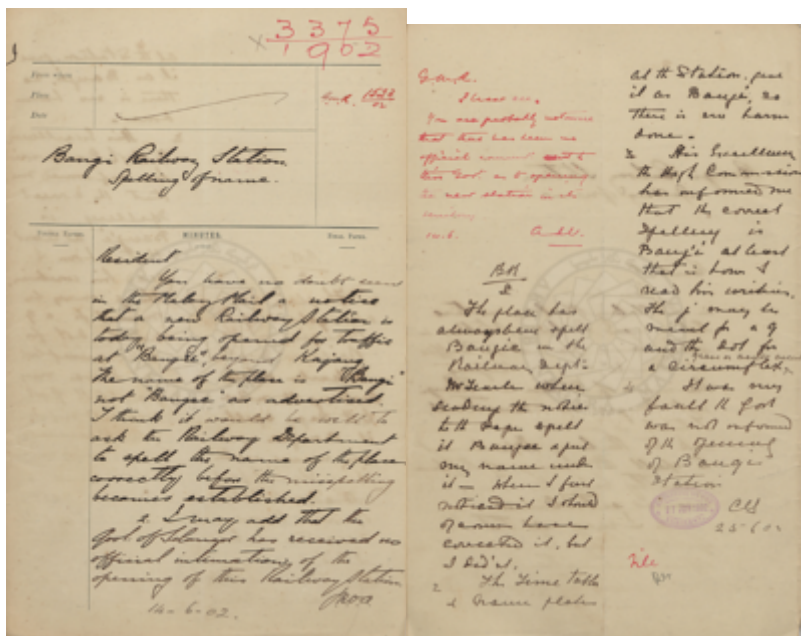 3375
1902
Bangi Railway Station
Spelling of name.
MINUTES.
Resident
You have no doubt seen
in the Malay Mail a notice
that a new Railway Station is
today being opened for traffic
at "Bangee", beyond Kajang
The name of the place is "Bangi"
not "Bangee" as advertised.
I think it would be well to
ask the Railway Department
to spell the name of the place
correctly before the misspelling
becomes established.
2. I may add that the
Govt of Selangor has received no
official intimation of the
opening of this Railway Station
14-6-02.
G.M.R.
You are probably not aware
that there has been no
official
this Govt. as to opening
14.6.
The place has
always been spelt
Bangie in the
Railway Dept.
when
sending the notice
to the
it Bangee & put
my name under
it - When I first
noticed it I should
of course have
corrected it, but
I didn't.
2 The Time table
& name plates
at the Station, give
it as Bangi, so
there is no harm
done.
3 His Excellency
the High Commissioner
has informed me
that the correct
spelling is
at least
that is how I
read his writing.
The j may be
meant for a g
and the dot for
a circumflex
It was my
fault the Govt
was not informed
of the opening
of Bangi
Station
25 6 02
File